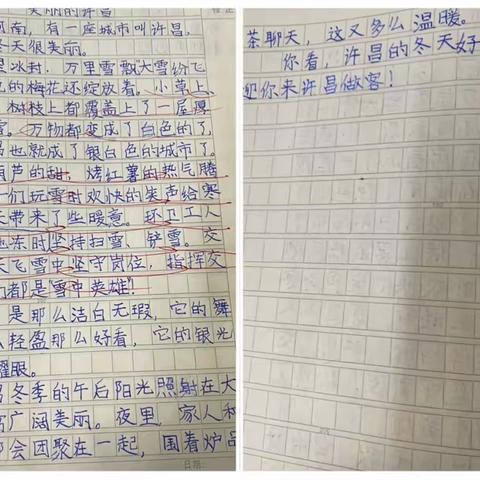 美丽的许昌
河南，有一座城市叫许昌，
冬天很美丽。
里冰封，万里雪飘"大雪纷飞
色的梅花还绽放着。小草上、
、树枝上都覆盖上了一层厚
雪。万物都变成了白色的了，
昌也就成了银白色的城市了。
葫芦的甜，烤红薯的热气腾
们玩雪时欢快的笑声给寒
天带来了些暖意。环卫工人
地冻时坚持扫雪、铲雪。交
天飞雪中坚守岗位，指挥交
们都是"雪中英雄"！
是那么洁白无瑕，它的舞
么轻盈那么好看，它的银光
耀眼。
昌冬季的午后阳光照射在大
广阔美丽。夜里，家人和
都会团聚在一起，围着炉品
日期:
茶聊天，这又多么温暖。
你看，许昌的冬天好
迎你来许昌做客！